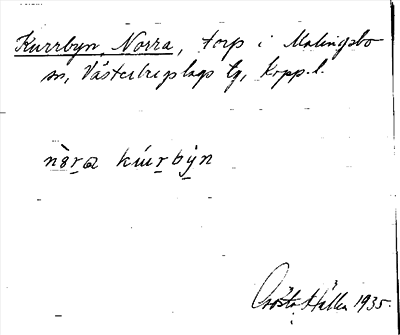 Kurrbyn, Norra, torp i Malingsbo
sn, Västerbergslags tg, Kopp. l.
nòra kúrbýn
Gösta Hallen 1935.